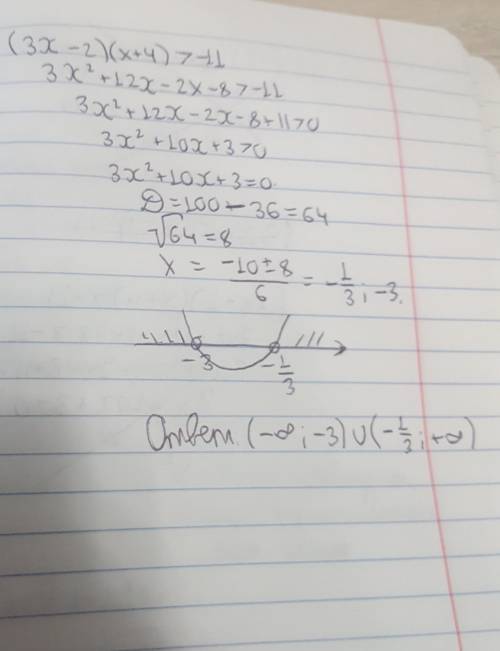 (3x-2)(x+4)>-11
3x²+12x-2x-8>-11
3x²+12x-2x-8+11>0
3x²+10x+3>0
3x²+10x+3=0.
D=100-36=64
√64=8
x = (-10±8)/6 = -1/3; -3.
-3 -1/3
Ответ. (-∞; -3)∪(-1/3; +∞)